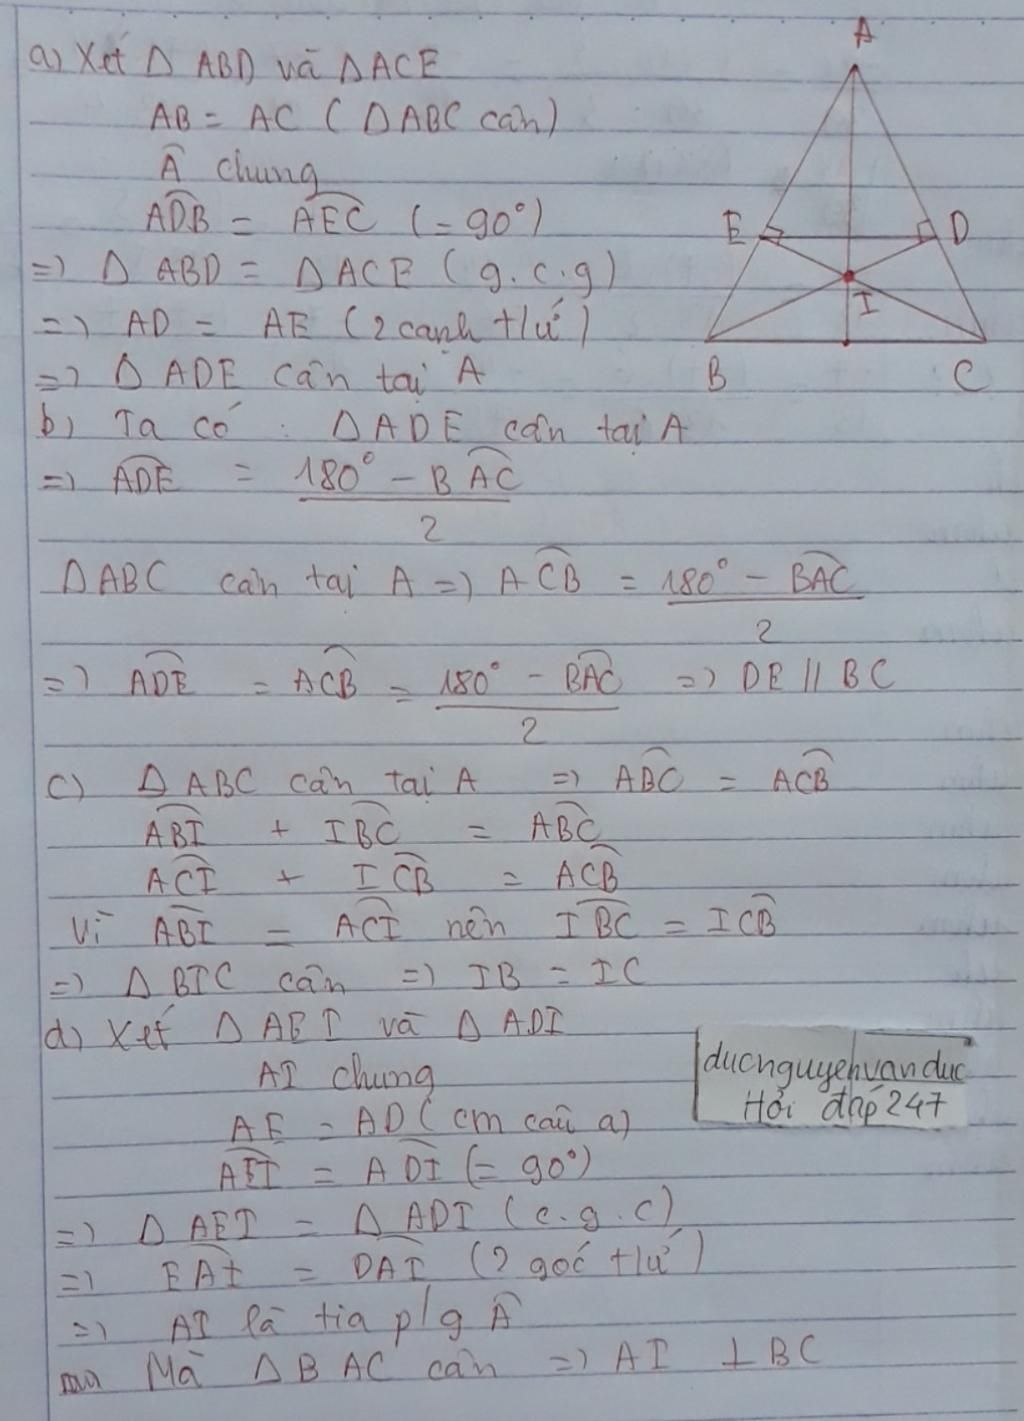 a) Xét Δ ABD và Δ ACE
AB = AC ( Δ ABC cân)
Â chung
ADB = AEC (= 90°)
=> Δ ABD = Δ ACE ( g.c.g )
=> AD = AE (2 cạnh t/ứ)
=> Δ ADE cân tại A
b) Ta có : Δ ADE cân tại A
=> ADE = 180° - BAC
2
Δ ABC cân tại A => ACB = 180° - BAC
2
=> ADE = ACB = 180° - BAC => DE // BC
2
c) Δ ABC cân tại A => ABC = ACB
ABI + IBC = ABC
ACI + ICB = ACB
Vì ABI = ACI nên IBC = ICB
=> Δ BIC cân => IB = IC
d) Xét Δ AEI và Δ ADI
AI chung
AE = AD ( cm câu a)
AEI = ADI (= 90°)
=> Δ AEI = Δ ADI (c.g.c)
=> EAI = DAI (2 góc t/ứ)
=> AI là tia p/g Â
Mà Δ BAC cân => AI ⊥ BC
A
E
D
I
B
C
ducnguyenvanduc
Hỏi đáp 247